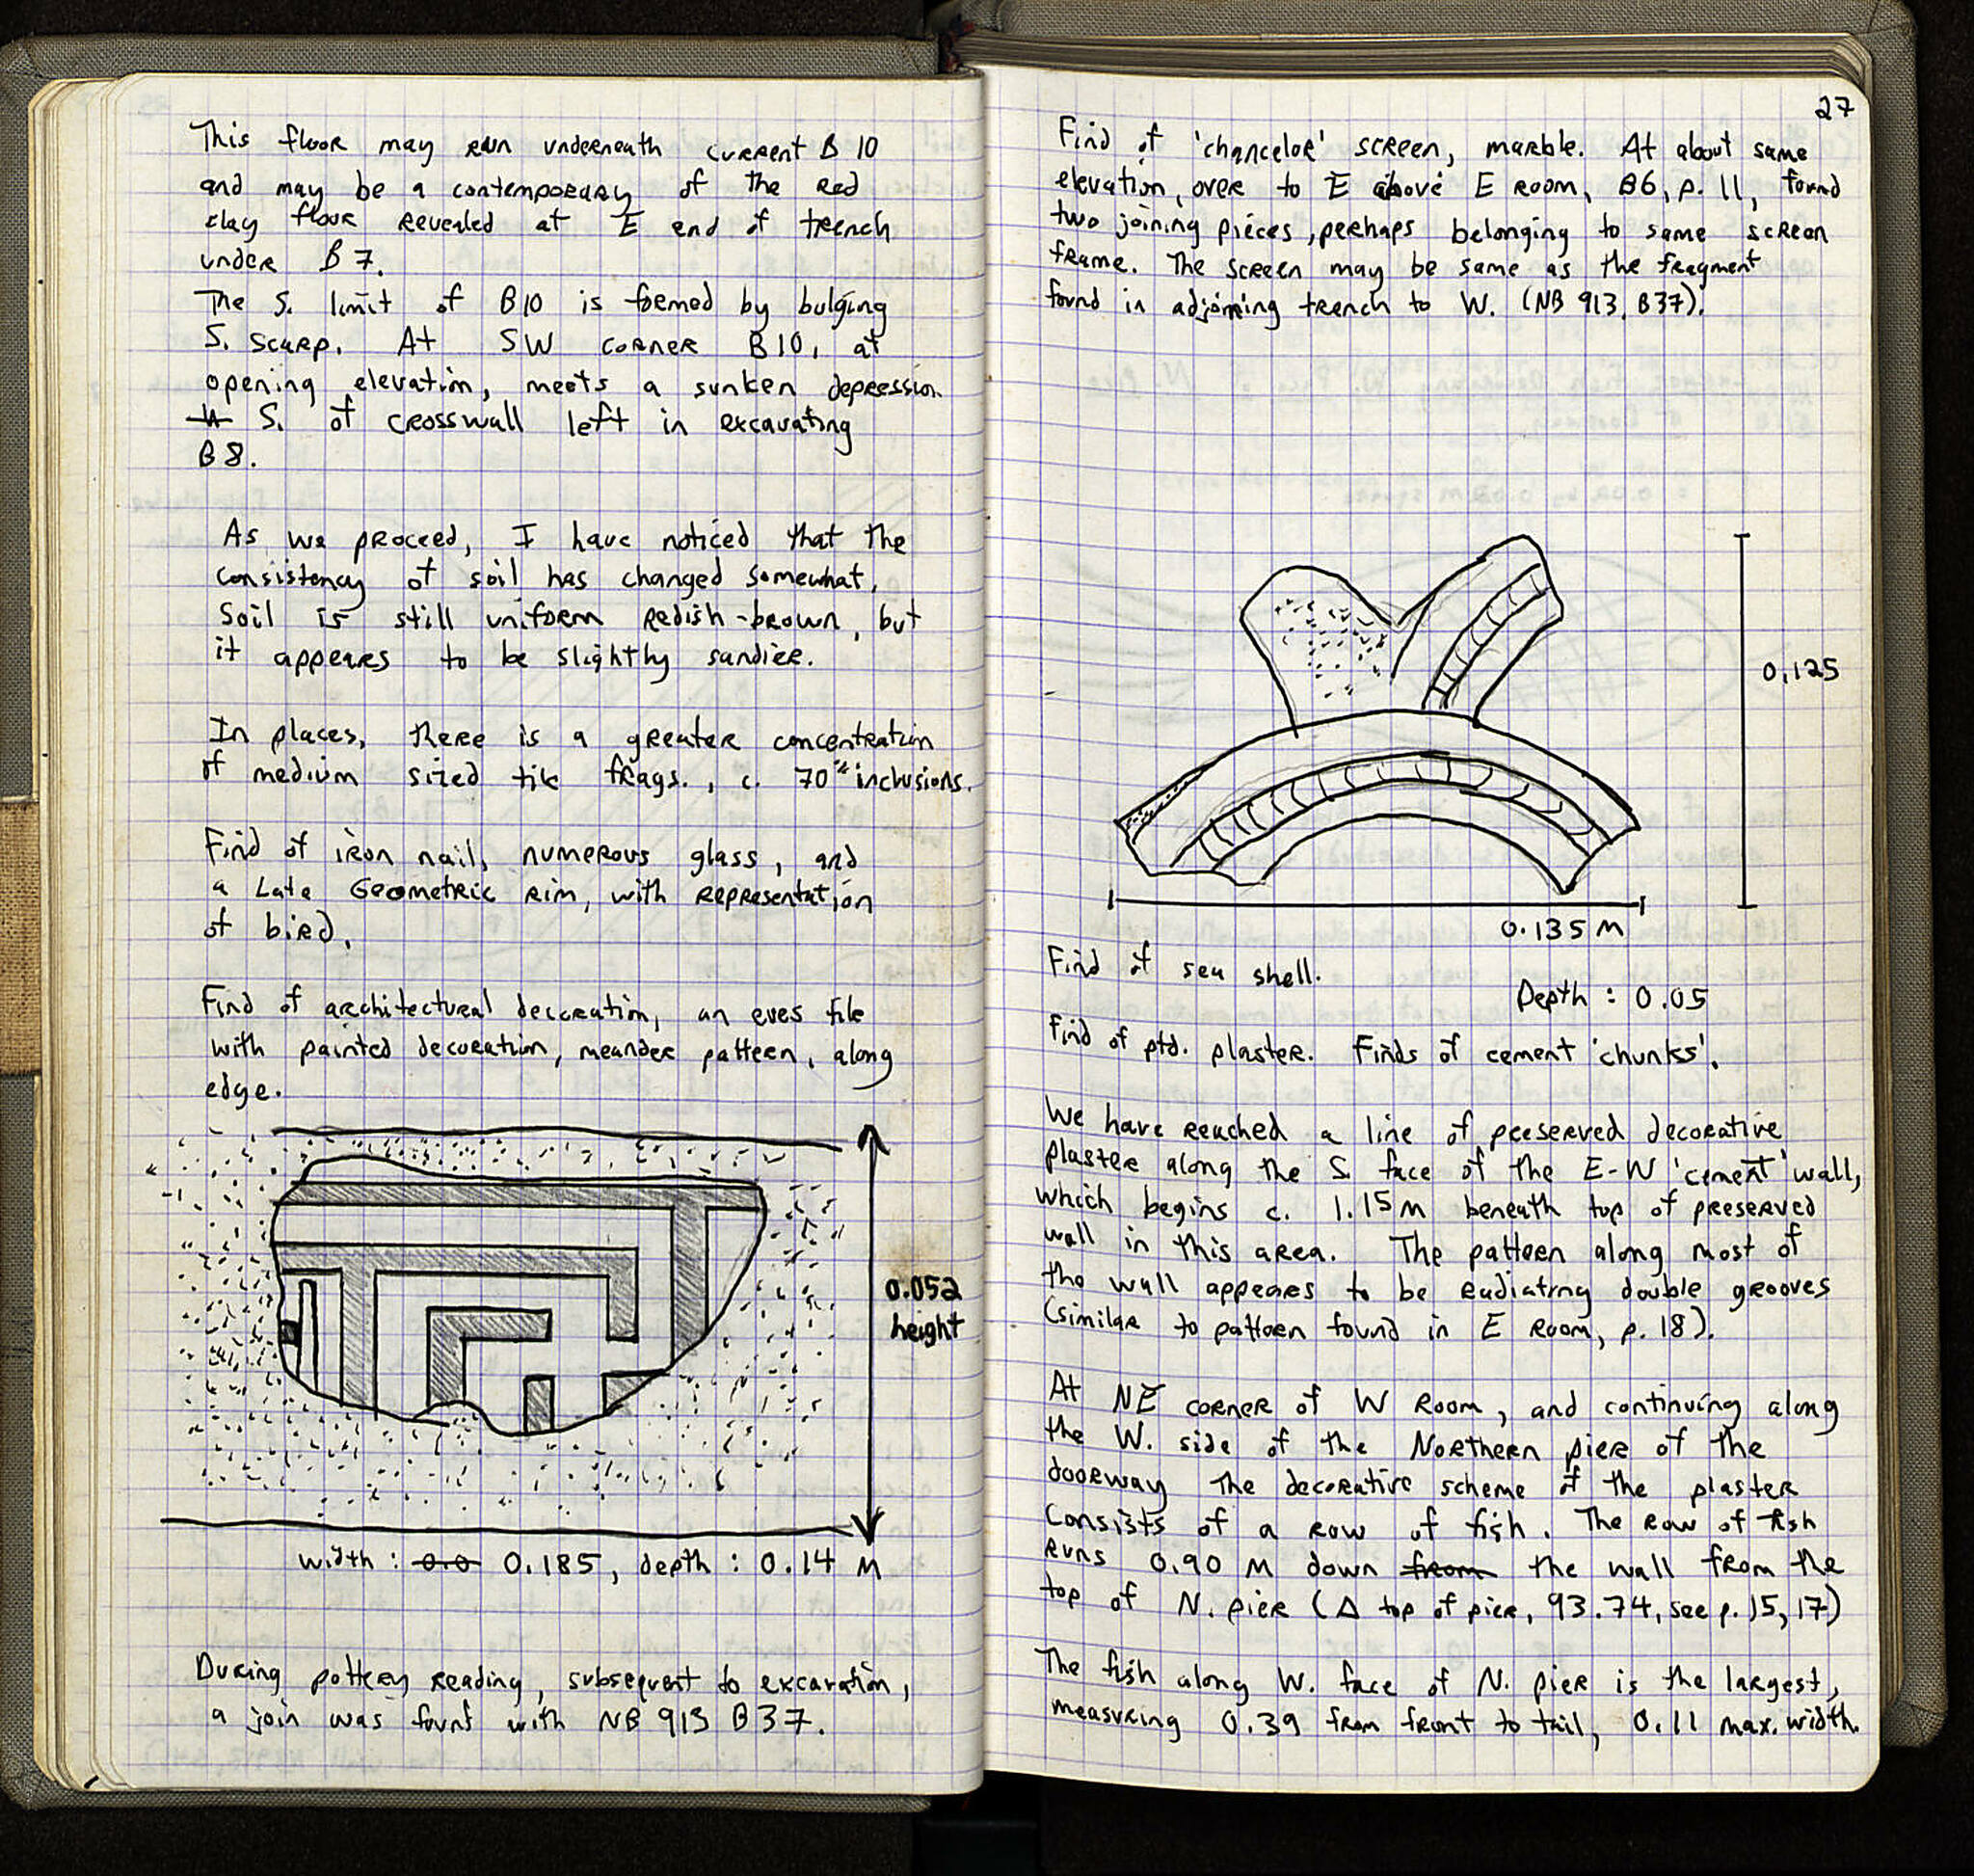 This floor may run underneath current B 10
and may be a contemporary of the red
clay floor revealed at E end of trench
under B 7.
The S. limit of B10 is formed by bulging
S. scarp. At SW corner B10, at
opening elevation, meets a sunken depression
S. of crosswall left in excavating
B8.
As we proceed, I have noticed that the
consistency of soil has changed somewhat.
Soil is still uniform redish-brown, but
it appears to be slightly sandier.
In places, there is a greater concentration
of medium sized tile frags., c. 70% inclusions.
Find of iron nail, numerous glass, and
a Late Geometric rim, with representation
of bird.
Find of architectural decoration, an eves tile
with painted decoration, meander pattern, along
edge.
0.052
height
width : 0.0 0.185, depth : 0.14 M
During pottery reading, subsequent to excavation,
a join was found with NB 913 B37.
27
Find of 'chancelor' screen, marble. At about same
elevation, over to E above E room, B6, p. 11, found
two joining pieces, perhaps belonging to same screen
frame. The screen may be same as the fragment
found in adjoining trench to W. (NB 913, B37).
0.125
0.135 M
Find of sea shell.
Depth : 0.05
Find of ptd. plaster. Finds of cement 'chunks'.
We have reached a line of preserved decorative
plaster along the S. face of the E-W 'cement' wall,
which begins c. 1.15 M beneath top of preserved
wall in this area. The pattern along most of
the wall appears to be radiating double grooves
(similar to pattern found in E room, p. 18).
At NE corner of W Room, and continuing along
the W. side of the Northern pier of the
doorway the decorative scheme of the plaster
consists of a row of fish. The row of fish
runs 0.90 M down from the wall from the
top of N. pier (Δ top of pier, 93.74, see p. 15, 17)
The fish along W. face of N. pier is the largest,
measuring 0.39 from front to tail, 0.11 max. width.